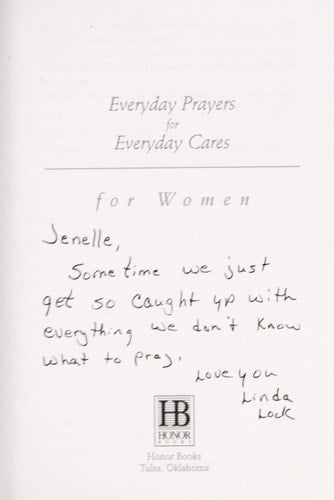 Everyday Prayers
for
Everyday Cares
for Women
Jenelle,
Sometime we just
get so caught up with
everything we don't know
what to pray.
Love you
Linda
Lock
HB
HONOR
BOOKS
Honor Books
Tulsa, Oklahoma